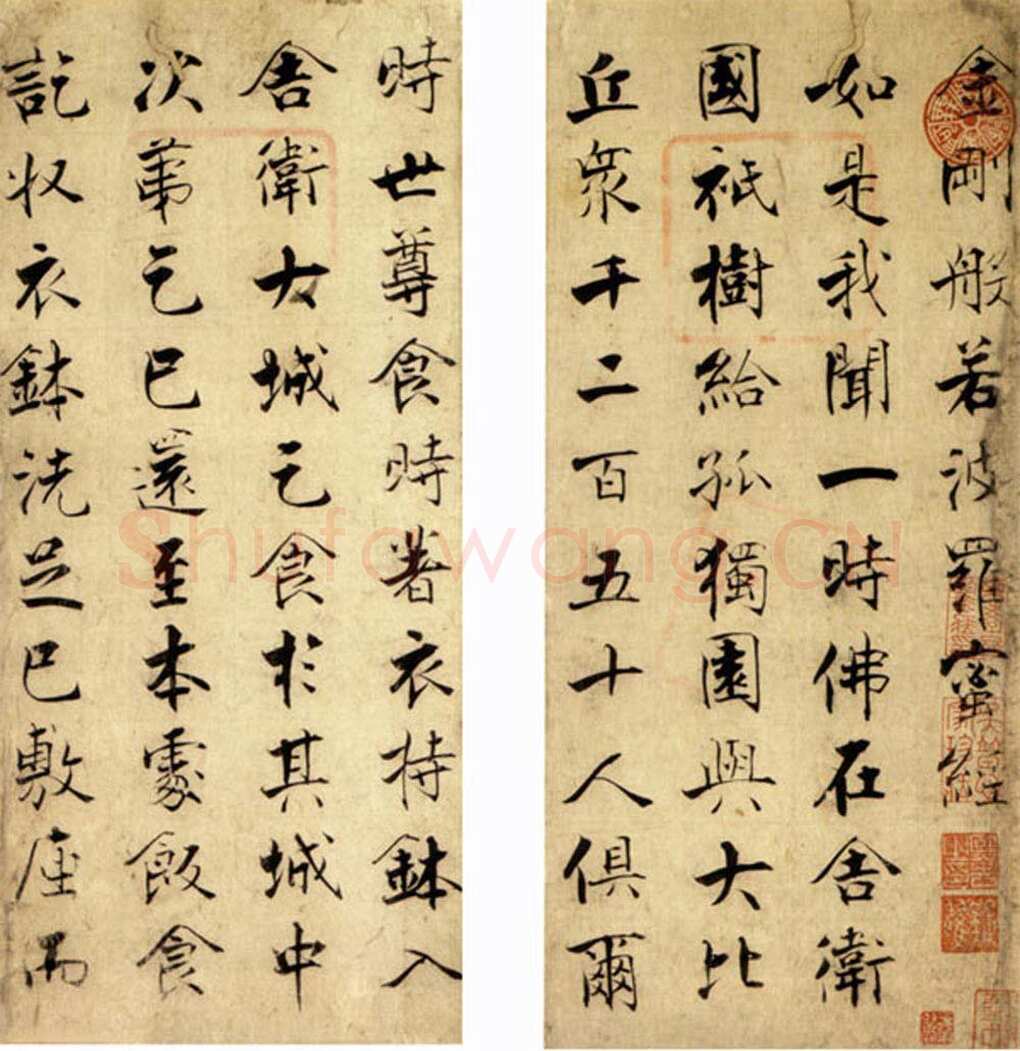 金剛般若波羅蜜經
如是我聞一時佛在舍衛
國祇樹給孤獨園與大比
丘眾千二百五十人俱爾
時世尊食時著衣持鉢入
舍衛大城乞食於其城中
次第乞已還至本處飯食
訖收衣鉢洗足已敷座而
Shufawang.CN